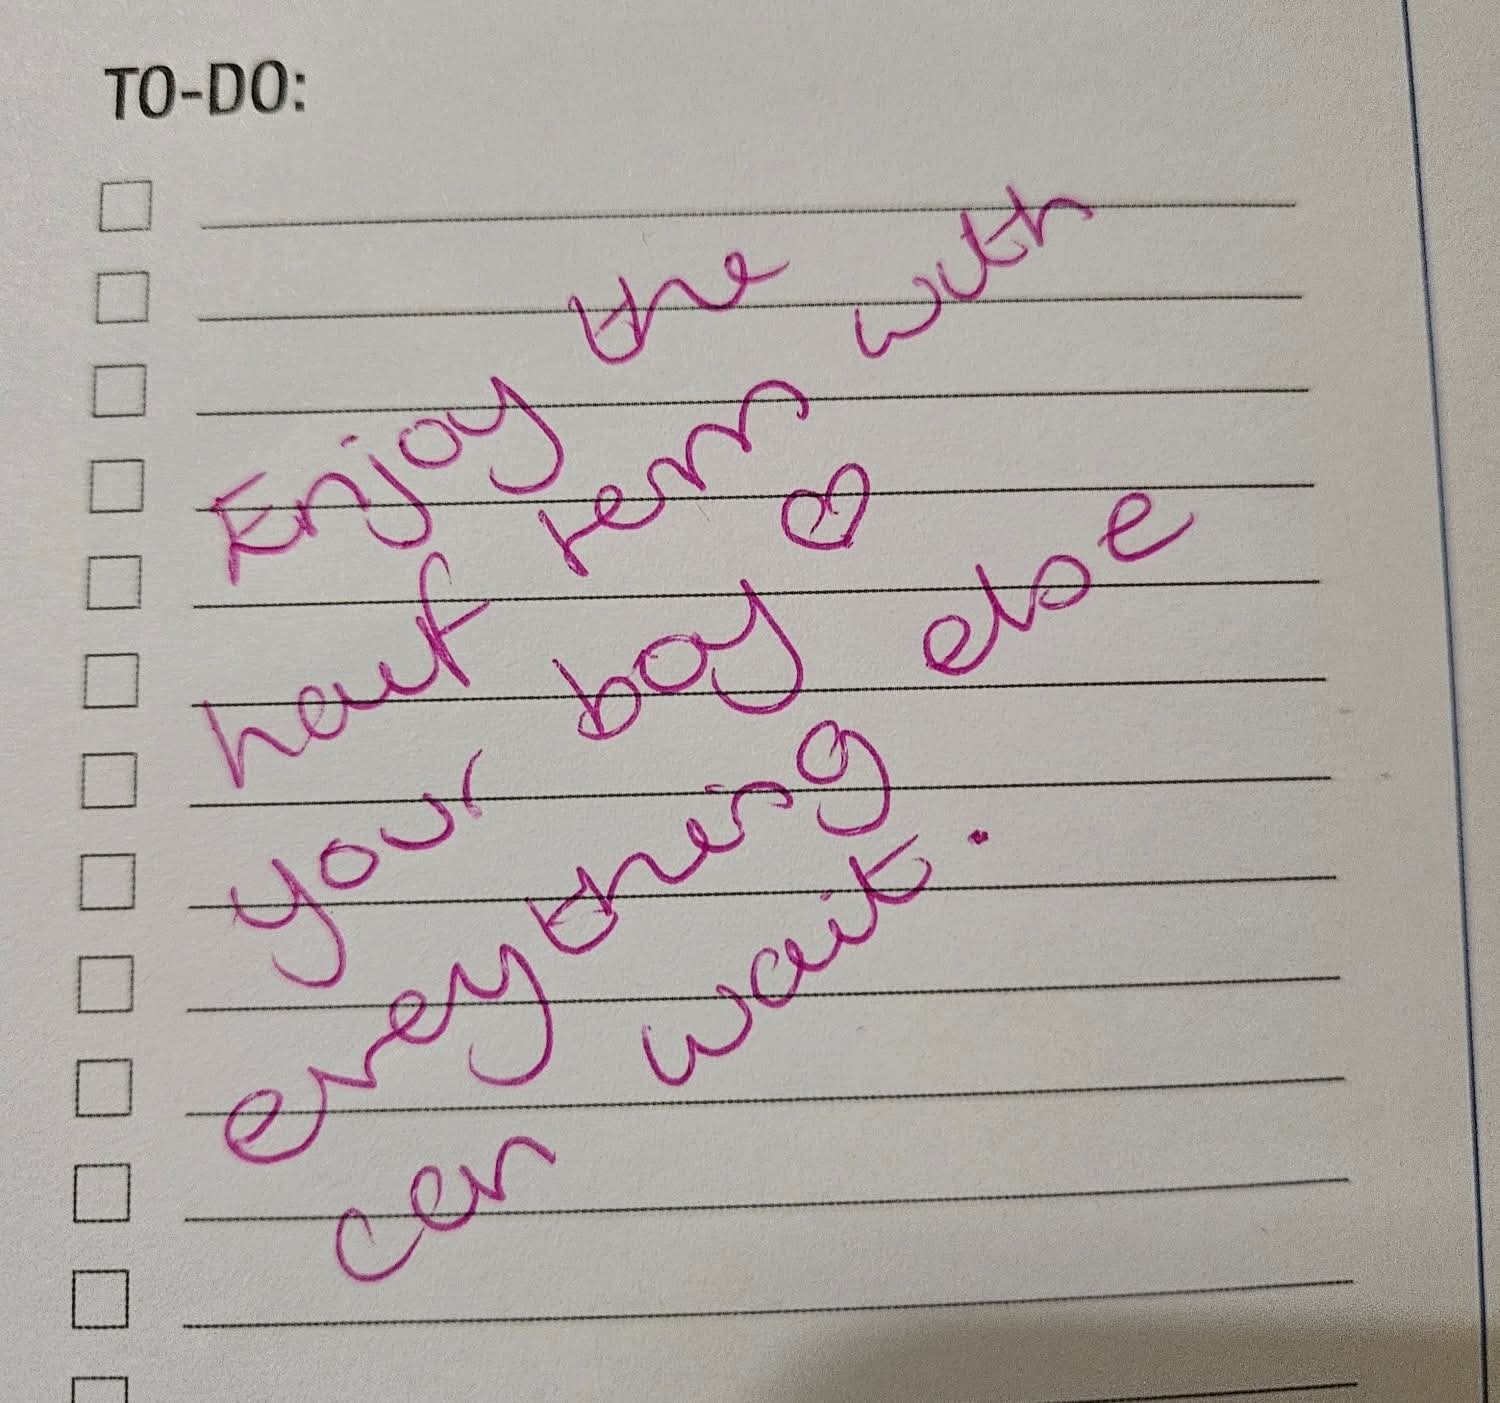 TO-DO:
Enjoy the
half term with
your boy ♡
everything else
can wait.